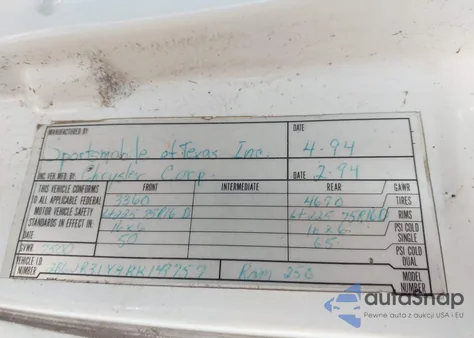 MANUFACTURED BY
Sportsmobile of Texas Inc.
DATE
4-94
INC. VEH. MFD. BY: Chrysler Corp.
DATE 2-94
THIS VEHICLE CONFORMS TO ALL APPLICABLE FEDERAL MOTOR VEHICLE SAFETY STANDARDS IN EFFECT IN:
FRONT INTERMEDIATE REAR GAWR
3360 4670 TIRES
225 75R16 D LT 225 75R16D RIMS
16x6 16x6 PSI COLD SINGLE
DATE 50 65 PSI COLD DUAL
GVWR 7500
VEHICLE I.D. NUMBER Ram 250 MODEL NUMBER
autoSnap
Pewne auta z aukcji USA i EU